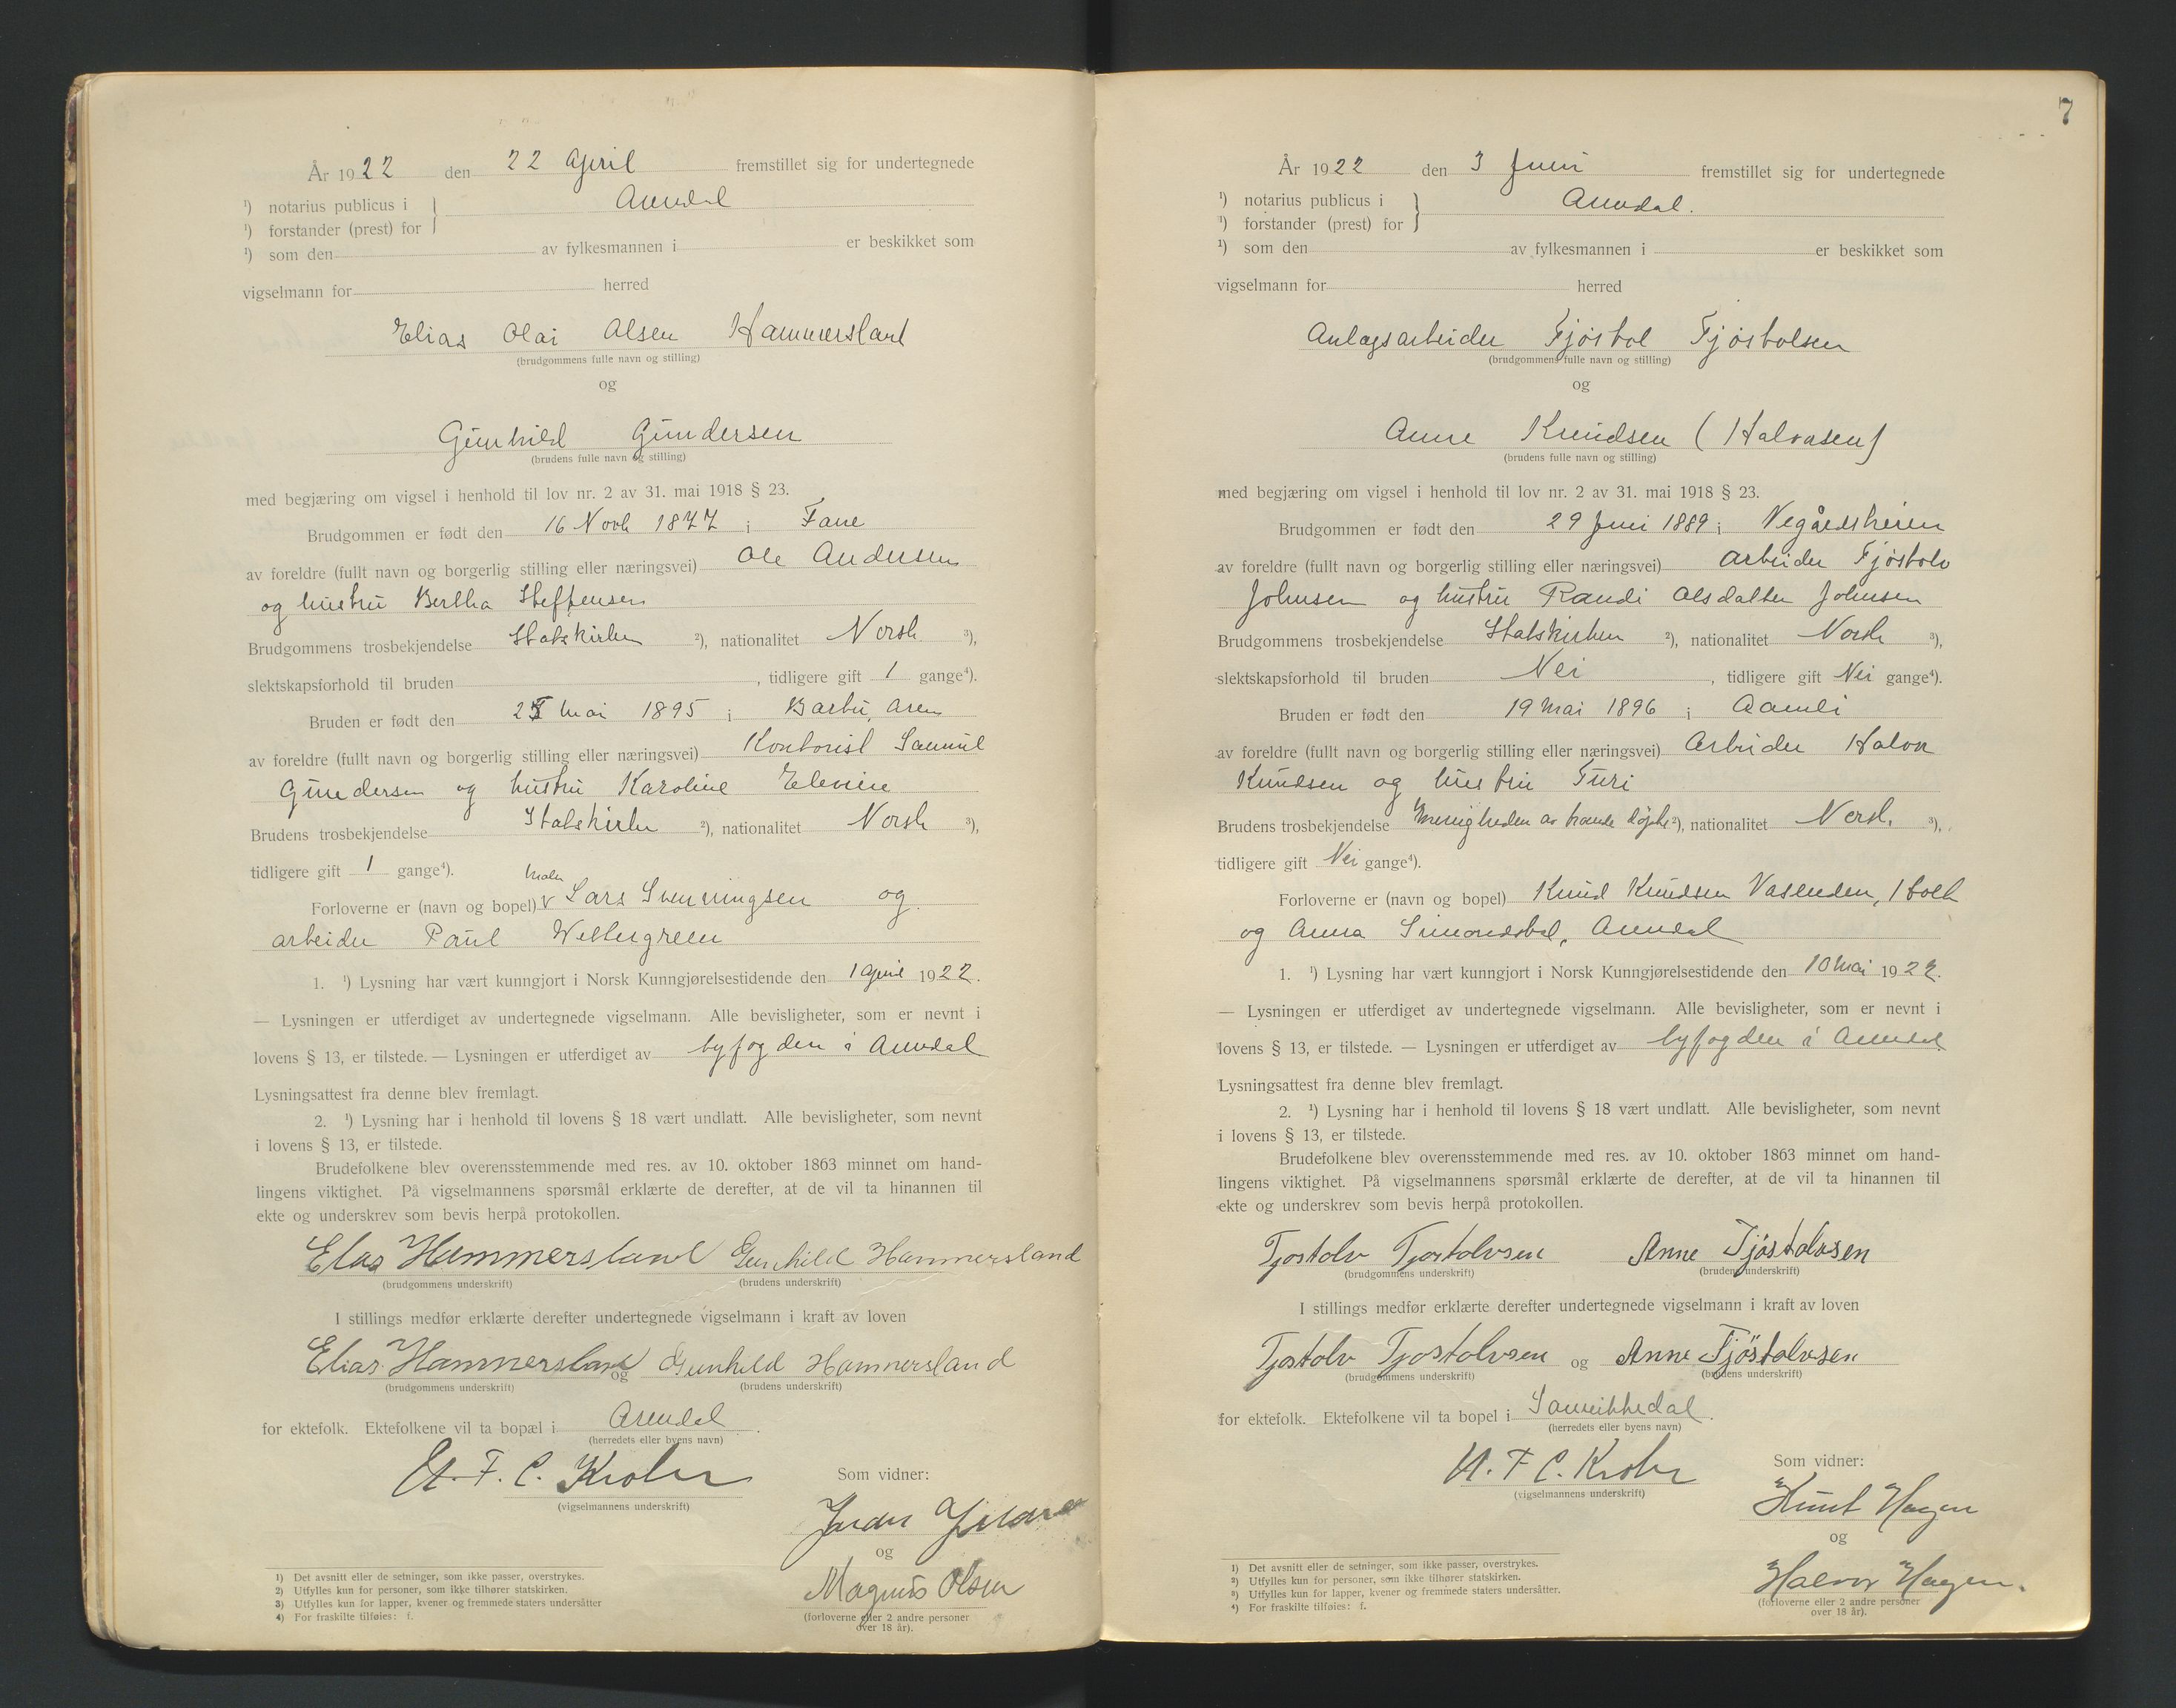 År 1922 den 22 April fremstillet sig for undertegnede
¹) notarius publicus i } Arendal
¹) forstander (prest) for
¹) som den av fylkesmannen i er beskikket som
vigselmann for herred
Elias Olai Olsen Hammersland
(brudgommens fulle navn og stilling)
og
Gunhild Gundersen
(brudens fulle navn og stilling)
med begjæring om vigsel i henhold til lov nr. 2 av 31. mai 1918 § 23.
Brudgommen er født den 16 Novb 1877 i Fane
av foreldre (fullt navn og borgerlig stilling eller næringsvei) Ole Andersen
og hustru Bertha Steffensen
Brudgommens trosbekjendelse Statskirken ²), nationalitet Norsk ³),
slektskapsforhold til bruden , tidligere gift 1 gange⁴).
Bruden er født den mai 1895 i Barbu,
av foreldre (fullt navn og borgerlig stilling eller næringsvei) Kontorist Samuel
Gundersen og hustru Karoline Elevine
Brudens trosbekjendelse Statskirken ²), nationalitet Norsk ³),
tidligere gift 1 gange⁴).
Forloverne er (navn og bopel) Maler Lars Svenningsen og
arbeider Paul Wettergreen
1. ¹) Lysning har vært kunngjort i Norsk Kunngjørelsestidende den 1 April 1922.
— Lysningen er utferdiget av undertegnede vigselmann. Alle bevisligheter, som er nevnt i
lovens § 13, er tilstede. — Lysningen er utferdiget av byfogden i Arendal
Lysningsattest fra denne blev fremlagt.
2. ¹) Lysning har i henhold til lovens § 18 vært undlatt. Alle bevisligheter, som nevnt
i lovens § 13, er tilstede.
Brudefolkene blev overensstemmende med res. av 10. oktober 1863 minnet om hand-
lingens viktighet. På vigselmannens spørsmål erklærte de derefter, at de vil ta hinannen til
ekte og underskrev som bevis herpå protokollen.
Elias Hammersland Gunhild Hammersland
(brudgommens underskrift) (brudens underskrift)
I stillings medfør erklærte derefter undertegnede vigselmann i kraft av loven
Elias Hammersland og Gunhild Hammersland
(brudgommens underskrift) (brudens underskrift)
for ektefolk. Ektefolkene vil ta bopæl i Arendal .
(herredets eller byens navn)
F. C. Krohn
(vigselmannens underskrift)
Som vidner:
og
Magnus Olsen
(forloverne eller 2 andre personer
over 18 år).
1) Det avsnitt eller de setninger, som ikke passer, overstrykes.
2) Utfylles kun for personer, som ikke tilhører statskirken.
3) Utfylles kun for lapper, kvener og fremmede staters undersåtter
4) For fraskilte tilføies: f.
7
År 1922 den 3 Juni fremstillet sig for undertegnede
¹) notarius publicus i } Arendal.
¹) forstander (prest) for
¹) som den av fylkesmannen i er beskikket som
vigselmann for herred
Anlegsarbeider Tjøstol Tjøstolsen
(brudgommens fulle navn og stilling)
og
Anne Knudsen (Halvasen)
(brudens fulle navn og stilling)
med begjæring om vigsel i henhold til lov nr. 2 av 31. mai 1918 § 23.
Brudgommen er født den 29 Juni 1889 i Vegårdsheien
av foreldre (fullt navn og borgerlig stilling eller næringsvei) arbeider Tjøstolv
Johnsen og hustru Randi Olsdatter Johnsen
Brudgommens trosbekjendelse Statskirken ²), nationalitet Norsk ³),
slektskapsforhold til bruden Nei , tidligere gift Nei gange⁴).
Bruden er født den 19 Mai 1896 i Aamli
av foreldre (fullt navn og borgerlig stilling eller næringsvei) Arbeider Halvor
Knudsen og hustru Turi
Brudens trosbekjendelse Menigheden av troende døpte ²), nationalitet Norsk. ³),
tidligere gift Nei gange⁴).
Forloverne er (navn og bopel) Knud Knudsen Vasenden,
og Anna Simonstad, Arendal
1. ¹) Lysning har vært kunngjort i Norsk Kunngjørelsestidende den 10 Mai 1922.
— Lysningen er utferdiget av undertegnede vigselmann. Alle bevisligheter, som er nevnt i
lovens § 13, er tilstede. — Lysningen er utferdiget av byfogden i Arendal
Lysningsattest fra denne blev fremlagt.
2. ¹) Lysning har i henhold til lovens § 18 vært undlatt. Alle bevisligheter, som nevnt
i lovens § 13, er tilstede.
Brudefolkene blev overensstemmende med res. av 10. oktober 1863 minnet om hand-
lingens viktighet. På vigselmannens spørsmål erklærte de derefter, at de vil ta hinannen til
ekte og underskrev som bevis herpå protokollen.
Tjostolv Tjostolvsen Anne Tjöstolvsen
(brudgommens underskrift) (brudens underskrift)
I stillings medfør erklærte derefter undertegnede vigselmann i kraft av loven
Tjostolv Tjostolvsen og Anne Tjöstolvsen
(brudgommens underskrift) (brudens underskrift)
for ektefolk. Ektefolkene vil ta bopel i Sannikedal .
(herredets eller byens navn)
F C. Krohn
(vigselmannens underskrift)
Som vidner:
Knut Hagen
og
Halvor Hagen.
(forloverne eller 2 andre personer
over 18 år).
1) Det avsnitt eller de setninger, som ikke passer, overstrykes.
2) Utfylles kun for personer, som ikke tilhører statskirken.
3) Utfylles kun for lapper, kvener og fremmede staters undersåtter.
4) For fraskilte tilføies: f.